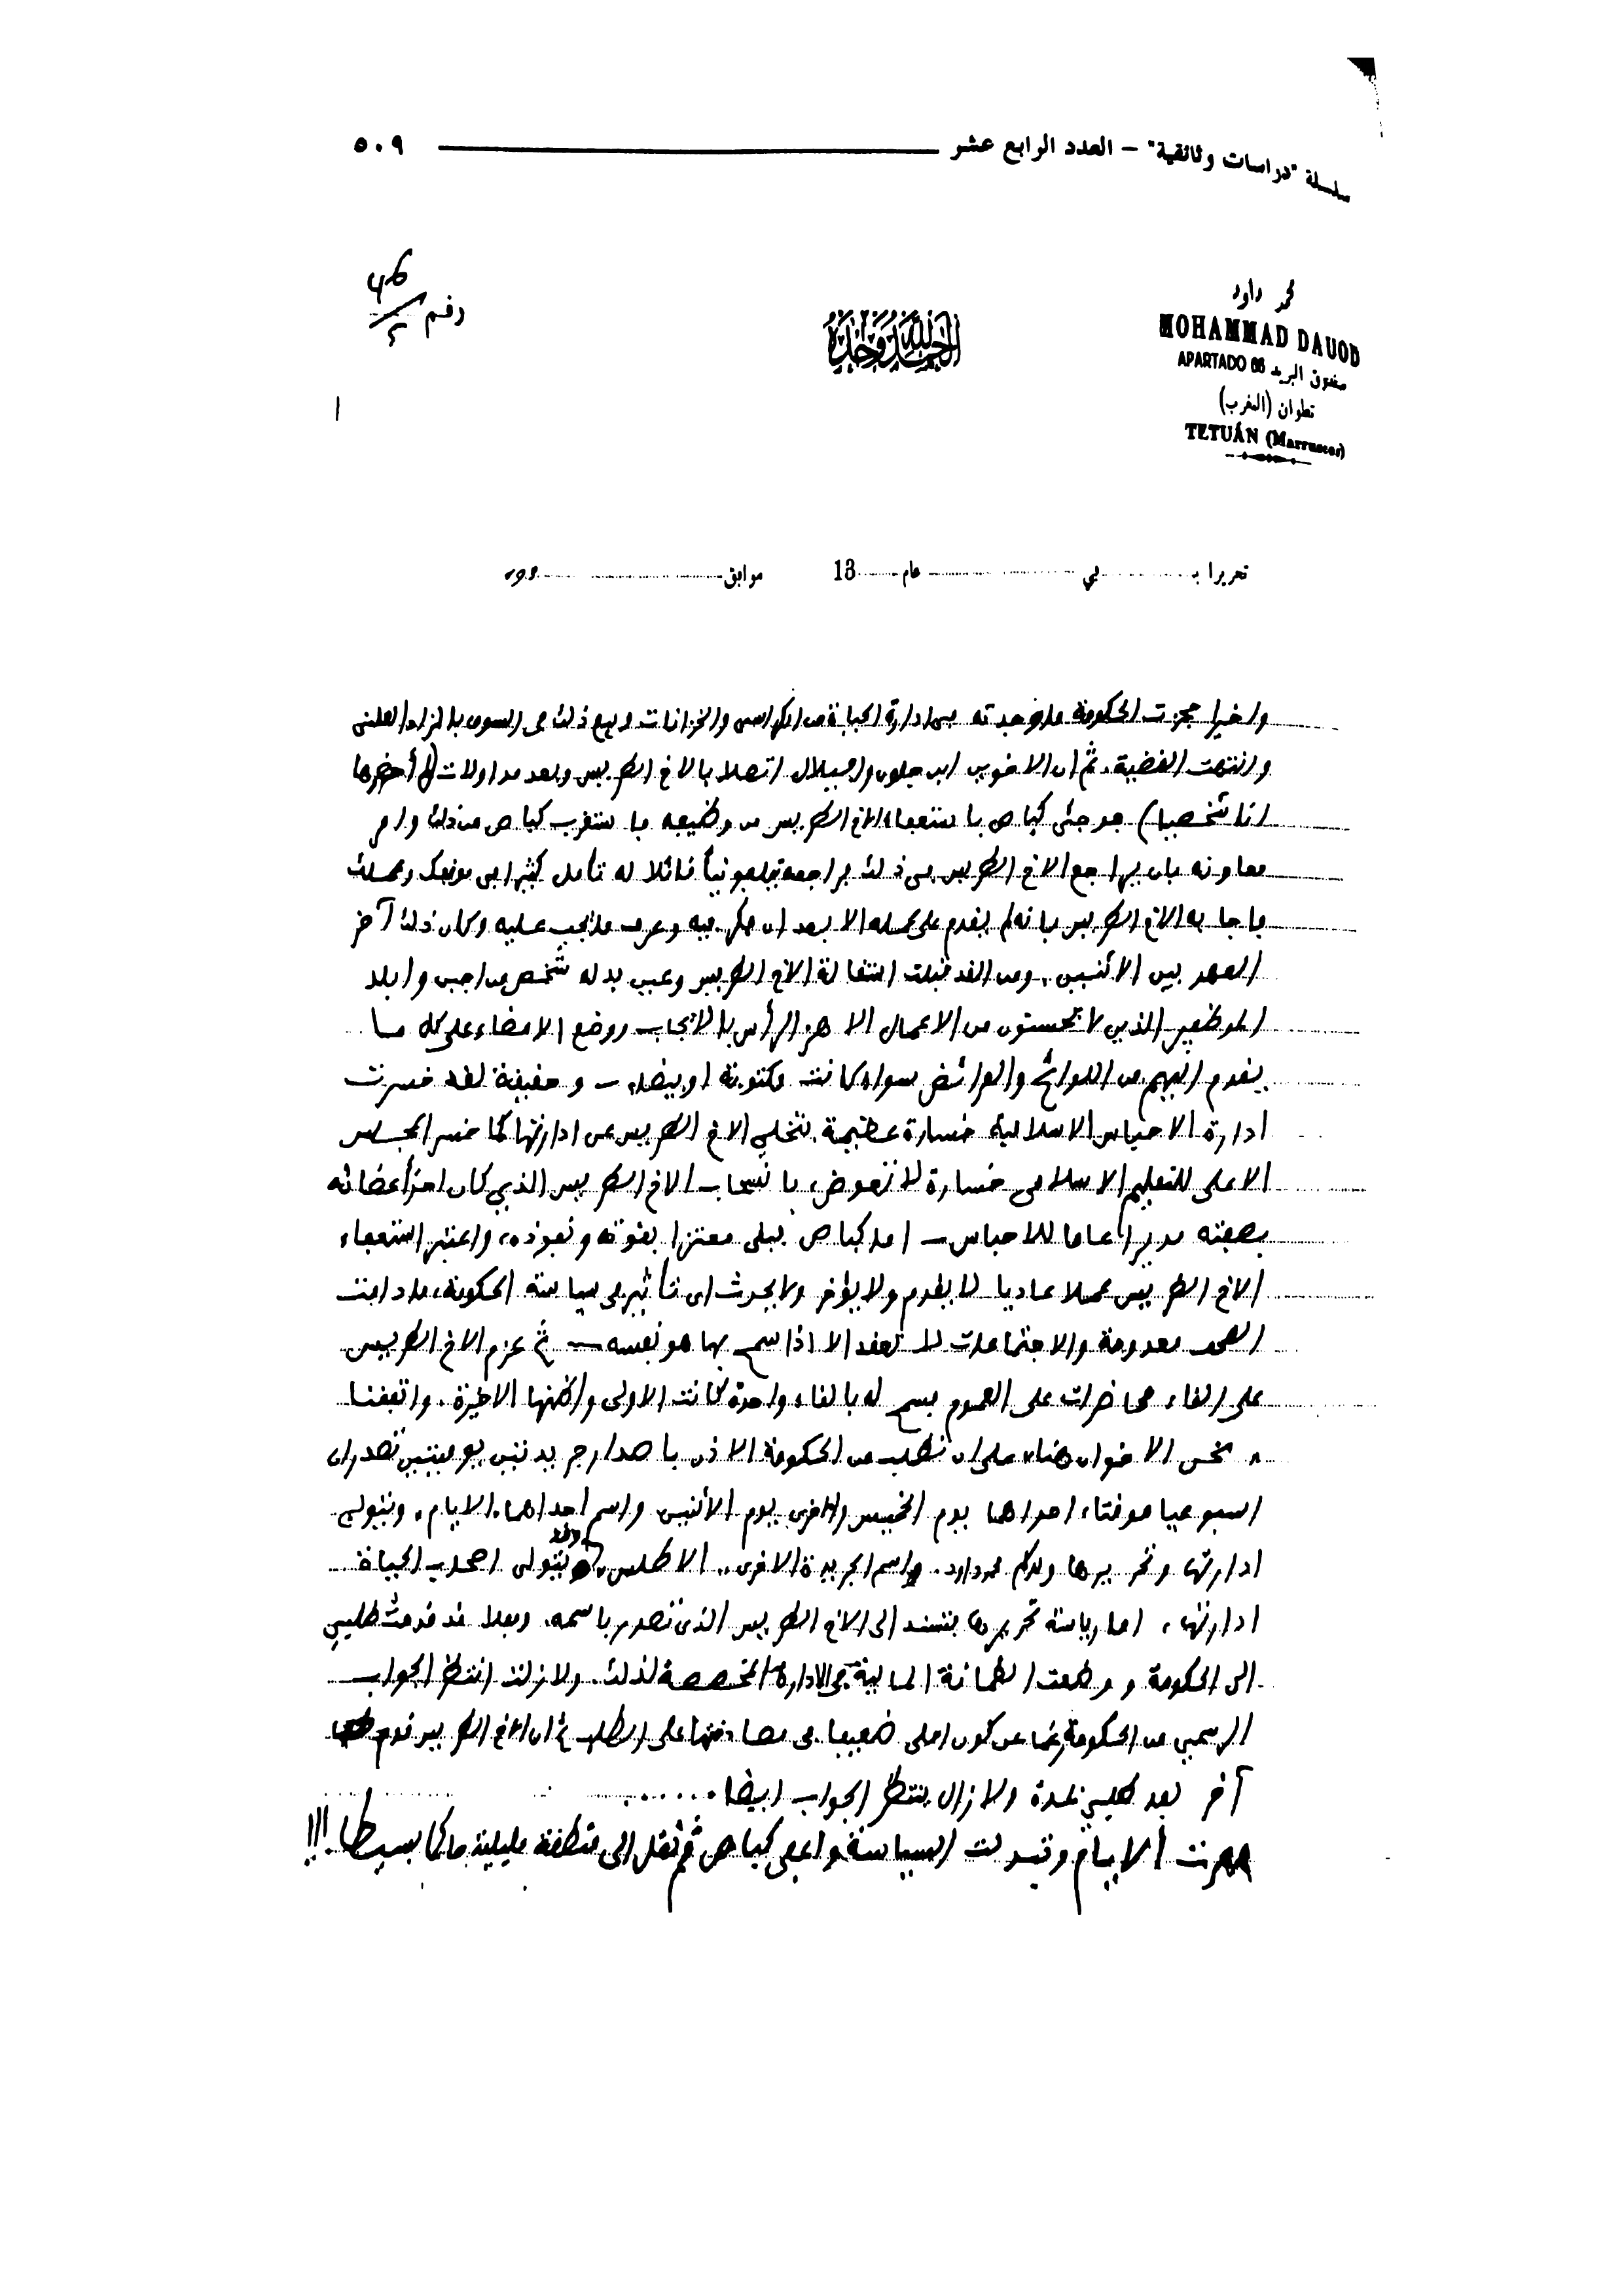 سلسلة "دراسات وثائقية" – العدد الرابع عشر ٥٠٩
محمد داود
MOHAMMAD DAUOD
APARTADO 66 صندوق البريد
تطوان (المغرب)
TETUÁN (Marruecos)
الحمد لله وحده
رقم 46/2
1
تحريرا بـ في عام 13 موافق
واخيرا حجزت الحكومة ما وجدته في ادارة الحياة من الكراسي والخزانات وبيع ذلك في السوق بالمزاد العلني
وانتهت القضية. ثم ان الاخوين ابن جلون وامبيلال اتصلا بالاخ الطريس وبعد مداولات (لم أحضرها
انا شخصيا) فوجئ كباص باستعفاء الاخ الطريس من وظيفه فاستغرب كباص من ذلك وامر
معاونه بان يراجع الاخ الطريس في ذلك فراجعه تيليفونيا قائلا له تأمل كثيرا في موقفك وعملك
فاجابه الاخ الطريس بانه لم يقدم على عمله الا بعد ان فكر فيه وعرف ما يجب عليه وكان ذلك آخر
العهد بين الاثنين. ومن الغد قبلت استقالة الاخ الطريس وعين بدله شخص من اجبن وابلد
الموظفين الذين لا يحسنون من الاعمال الا هز الرأس بالايجاب ووضع الامضاء على كل ما
يقدم اليهم من اللوائح والعرائض سواء كانت مكتوبة او بيضاء – وحقيقة لقد خسرت
ادارة الاحباس الاسلامية خسارة عظيمة بتخلي الاخ الطريس عن ادارتها كما خسر المجلس
الاعلى للتعليم الاسلامي خسارة لا تعوض، بانسحاب الاخ الطريس الذي كان احد أعضائه
بصفته مديرا عاما للاحباس – اما كباص فبقي معتزا بقوته ونفوذه، واعتبر استعفاء
الاخ الطريس عملا عاديا لا يقدم ولا يؤخر ولا يحدث اي تأثير في سياسة الحكومة، ما دامت
الصحف معدومة والاجتماعات لا تعقد الا اذا سمح بها هو نفسه – ثم عزم الاخ الطريس
على القاء محاضرات على العموم فسمح له بالقاء واحدة كانت الاولى واظنها الاخيرة. واتفقنا
نحن الاخوان هنا على ان نطلب من الحكومة الاذن باصدار جريدتين يوميتين تصدران
اسبوعيا موقتا، احداهما يوم الخميس والاخرى يوم الاثنين واسم احداهما. الايام، ويتولى
ادارتها وتحريرها محمد داود. واسم الجريدة الاخرى.. الاطلس، وقد يتولى اصحاب الحياة
ادارتها، اما رياسة تحريرها فتسند الى الاخ الطريس الذي تصدر باسمه. وفعلا قد قدمت طلبي
الى الحكومة ووضعت الضمانة المالية في الادارة المخصصة لذلك. ولا زلت انتظر الجواب
الرسمي من الحكومة رغما عن كون املي ضعيفا في مصادقتها على الطلب ثم ان الاخ الطريس قدم طلبا
آخر بعد طلبي بمدة ولا زال ينتظر الجواب ايضا......
مرت الايام وتبدلت السياسة واعفي كباص ثم نقل الى منطقة مليلية حاكما بسيطا.!!!